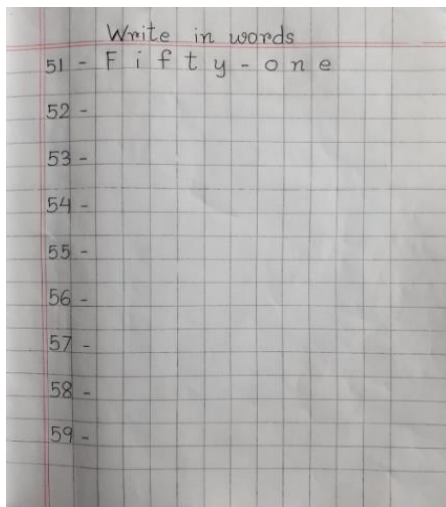 Write in words
51 - Fifty-one
52 -
53 -
54 -
55 -
56 -
57 -
58 -
59 -